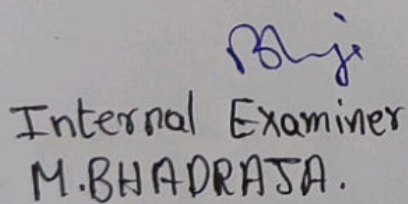 Internal Examiner
M.BHADRAJA.